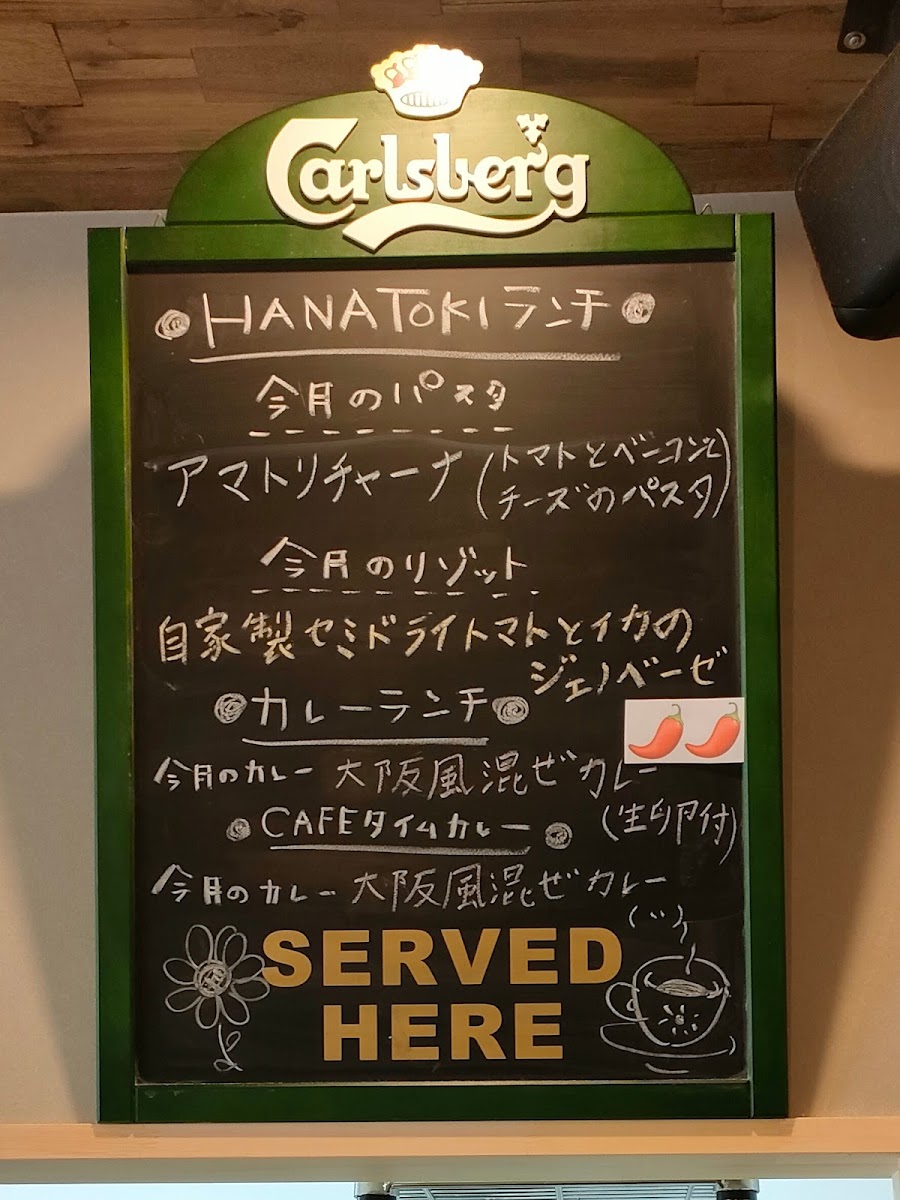 Carlsberg
HANATOKIランチ
今月のパスタ
アマトリチャーナ(トマトとベーコンと
チーズのパスタ)
今月のリゾット
自家製セミドライトマトとイカの
ジェノベーゼ
カレーランチ
今月のカレー 大阪風混ぜカレー
(生卵付)
CAFEタイムカレー
今月のカレー 大阪風混ぜカレー
(〃)
SERVED
HERE